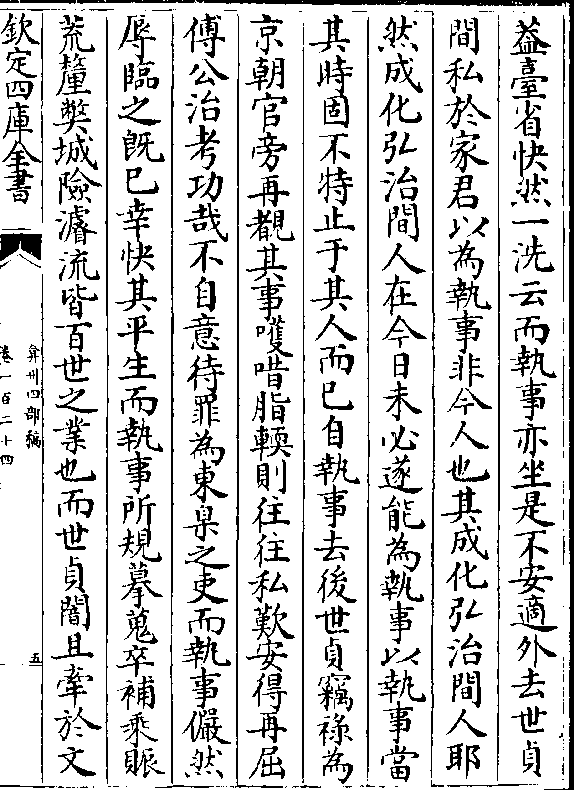 葢臺省快然一洗云而執事亦坐是不安適外去世貞
間私於家君以為執事非今人也其成化弘治間人耶
然成化弘治間人在今日未必遂能為執事以執事當
其時固不特止于其人而已自執事去後世貞竊祿為
京朝官旁再覩其事嚄唶脂輭則往往私歎安得再屈
傅公治考功哉不自意待罪為東臬之吏而執事儼然
辱臨之既已幸快其平生而執事所規摹蒐卒補乘賑
荒釐獘城險濬流皆百世之業也而世貞闇且牽於文
欽定四庫全書
弇州四部稿
卷一百二十四
五